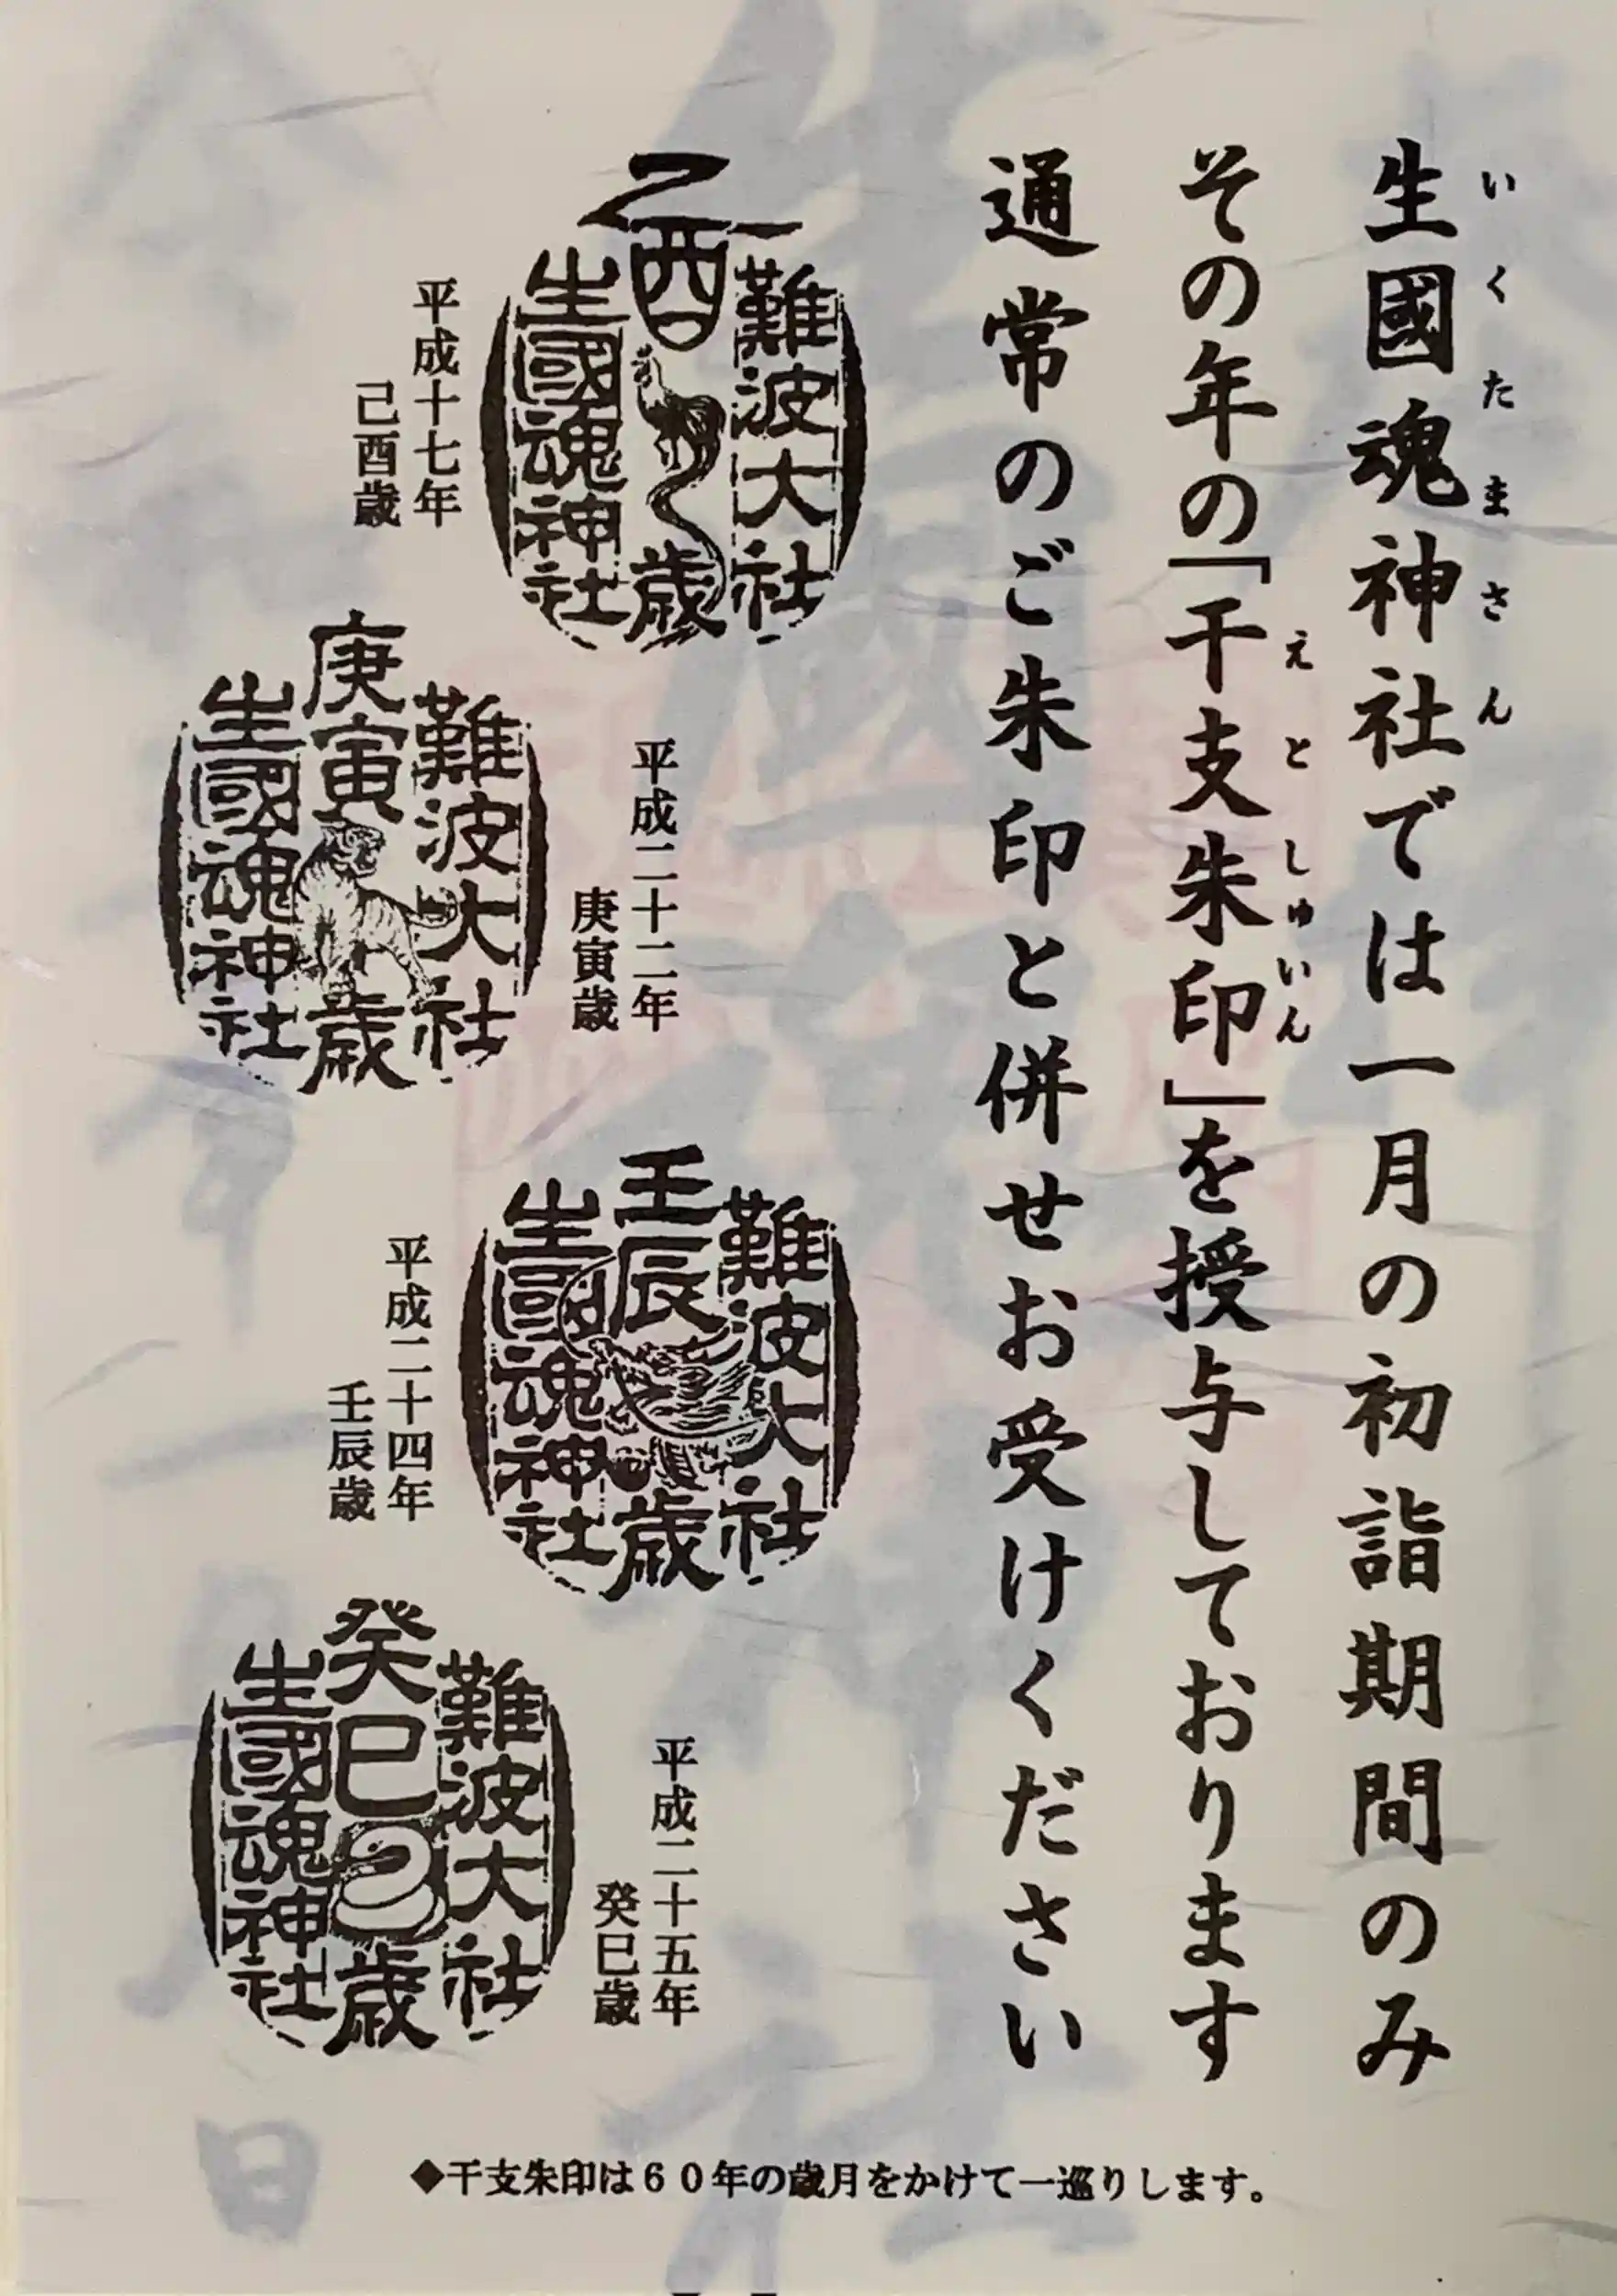 生國魂神社では一月の初詣期間のみ
いくたまさん
その年の「干支朱印」を授与しております
えとしゅいん
通常のご朱印と併せお受けください
難波大社
乙酉歳
生國魂神社
平成十七年
己酉歳
難波大社
庚寅歳
生國魂神社
平成二十二年
庚寅歳
難波大社
壬辰歳
生國魂神社
平成二十四年
壬辰歳
難波大社
癸巳歳
生國魂神社
平成二十五年
癸巳歳
◆干支朱印は60年の歳月をかけて一巡りします。